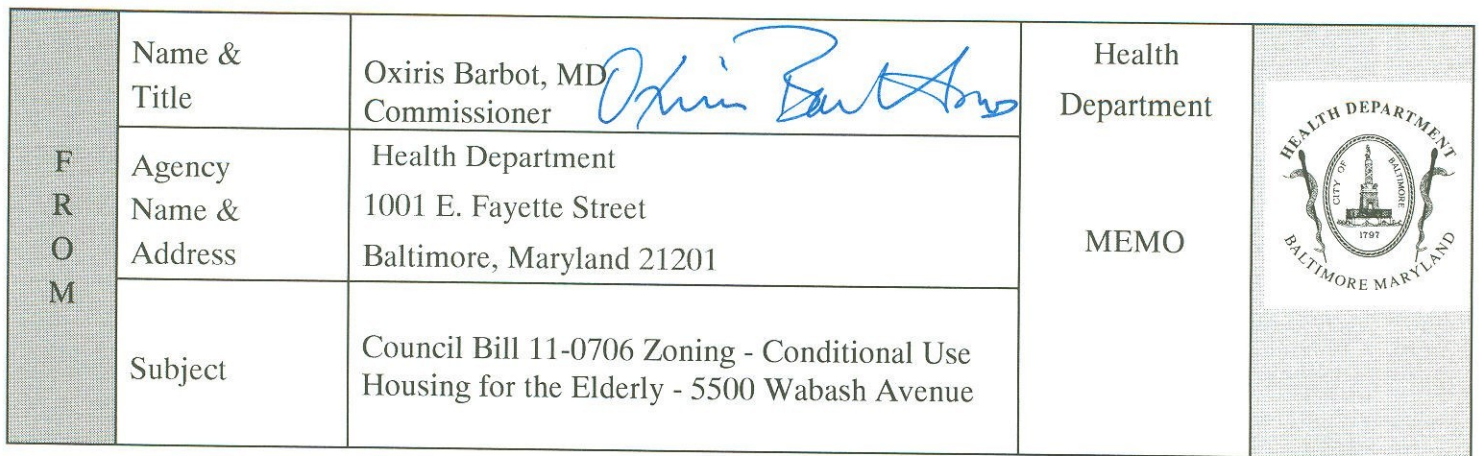 FROM
Name &
Title
Oxiris Barbot, MD
Commissioner
Oxiris Barbot
Agency
Name &
Address
Health Department
1001 E. Fayette Street
Baltimore, Maryland 21201
Subject
Council Bill 11-0706 Zoning - Conditional Use
Housing for the Elderly - 5500 Wabash Avenue
Health
Department
MEMO
HEALTH DEPARTMENT
CITY OF BALTIMORE
1797
BALTIMORE MARYLAND